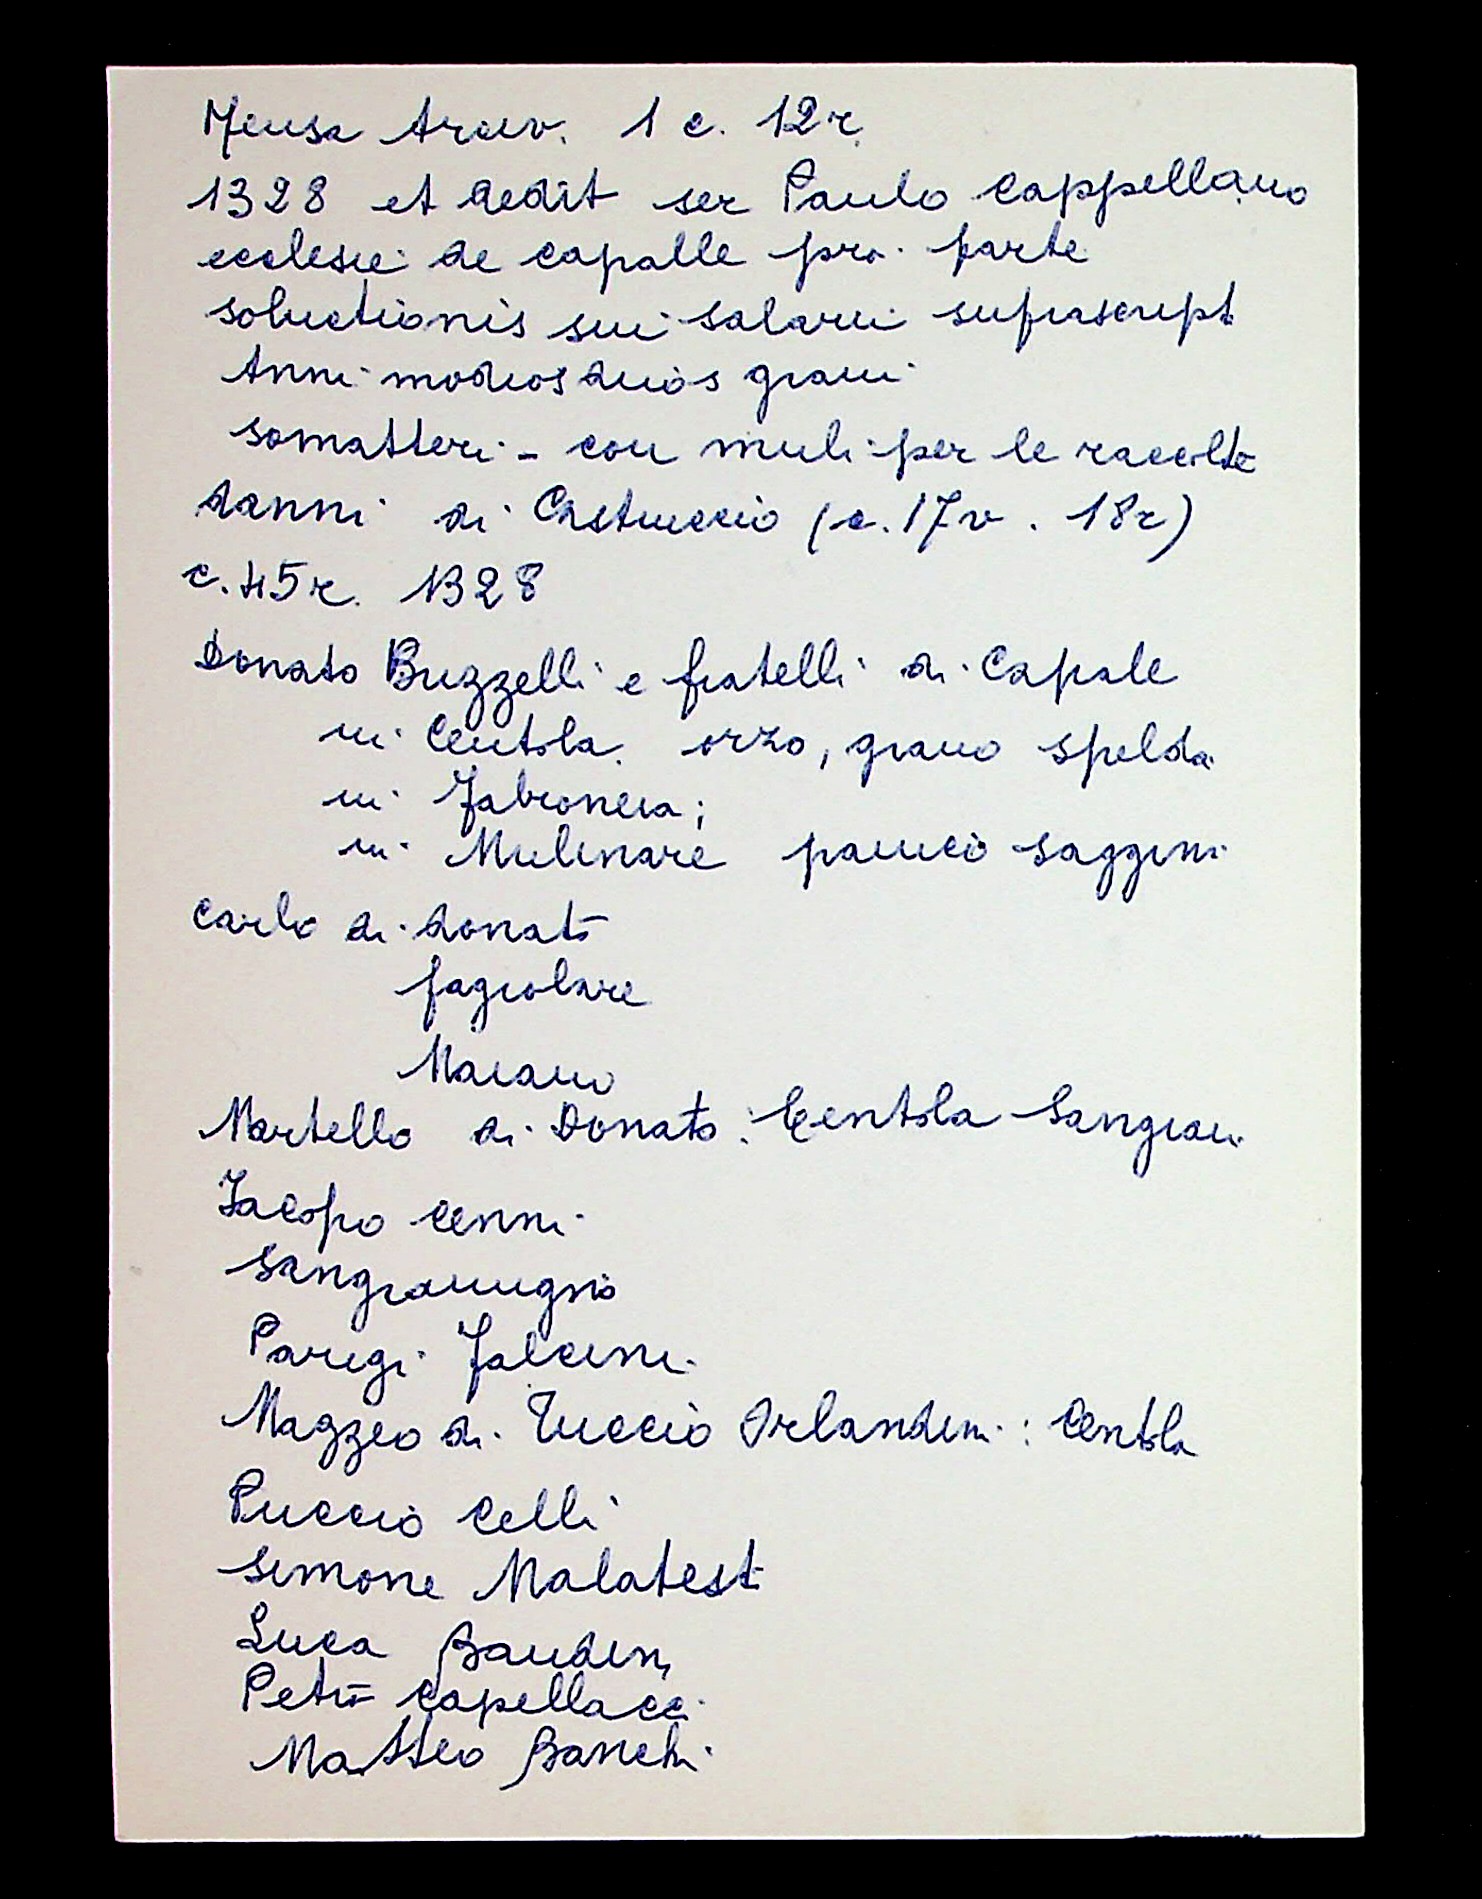 Mensa Arciv. 1 c. 12r.
1328 et dedit ser Paulo cappellano
ecclesie de capalle pro parte
soluctionis sui salarii suprascript
Anni modios duos grani
somatteri - con muli per le raccolte
danni di Castruccio (c. 17v. 18r)
c. 45r. 1328
Donato Buzzelli e fratelli di Capale
in Centola. orzo, grano spelda
in Fabroneia;
in Mulinare panico saggini
Carlo di donato
fagiolare
Maiano
Martello di Donato: Centola Sangran.
Jacopo cenni
Sangiamugnio
Parigi Falcini
Mazzeo di Tuccio Orlandini: Centola
Puccio Celli
Simone Malatesti
Luca Baudini
Petro Capellacci
Matteo Banchi